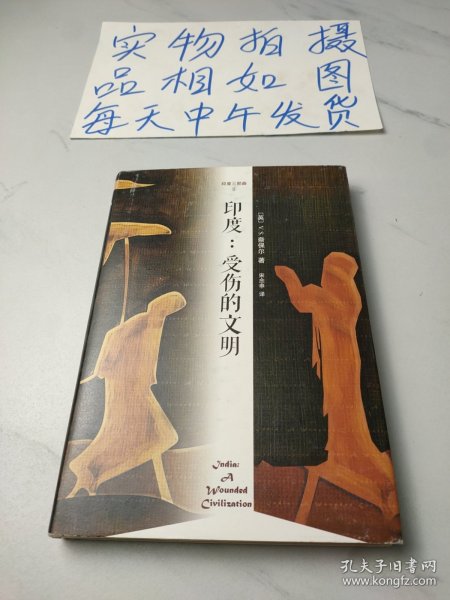 实物拍摄
品相如图
每天中午发货
印度三部曲
Ⅱ
印度：受伤的文明
[英] V.S.奈保尔 著
宋念申 译
India:
A
Wounded
Civilization
孔夫子旧书网
www.kongfz.com